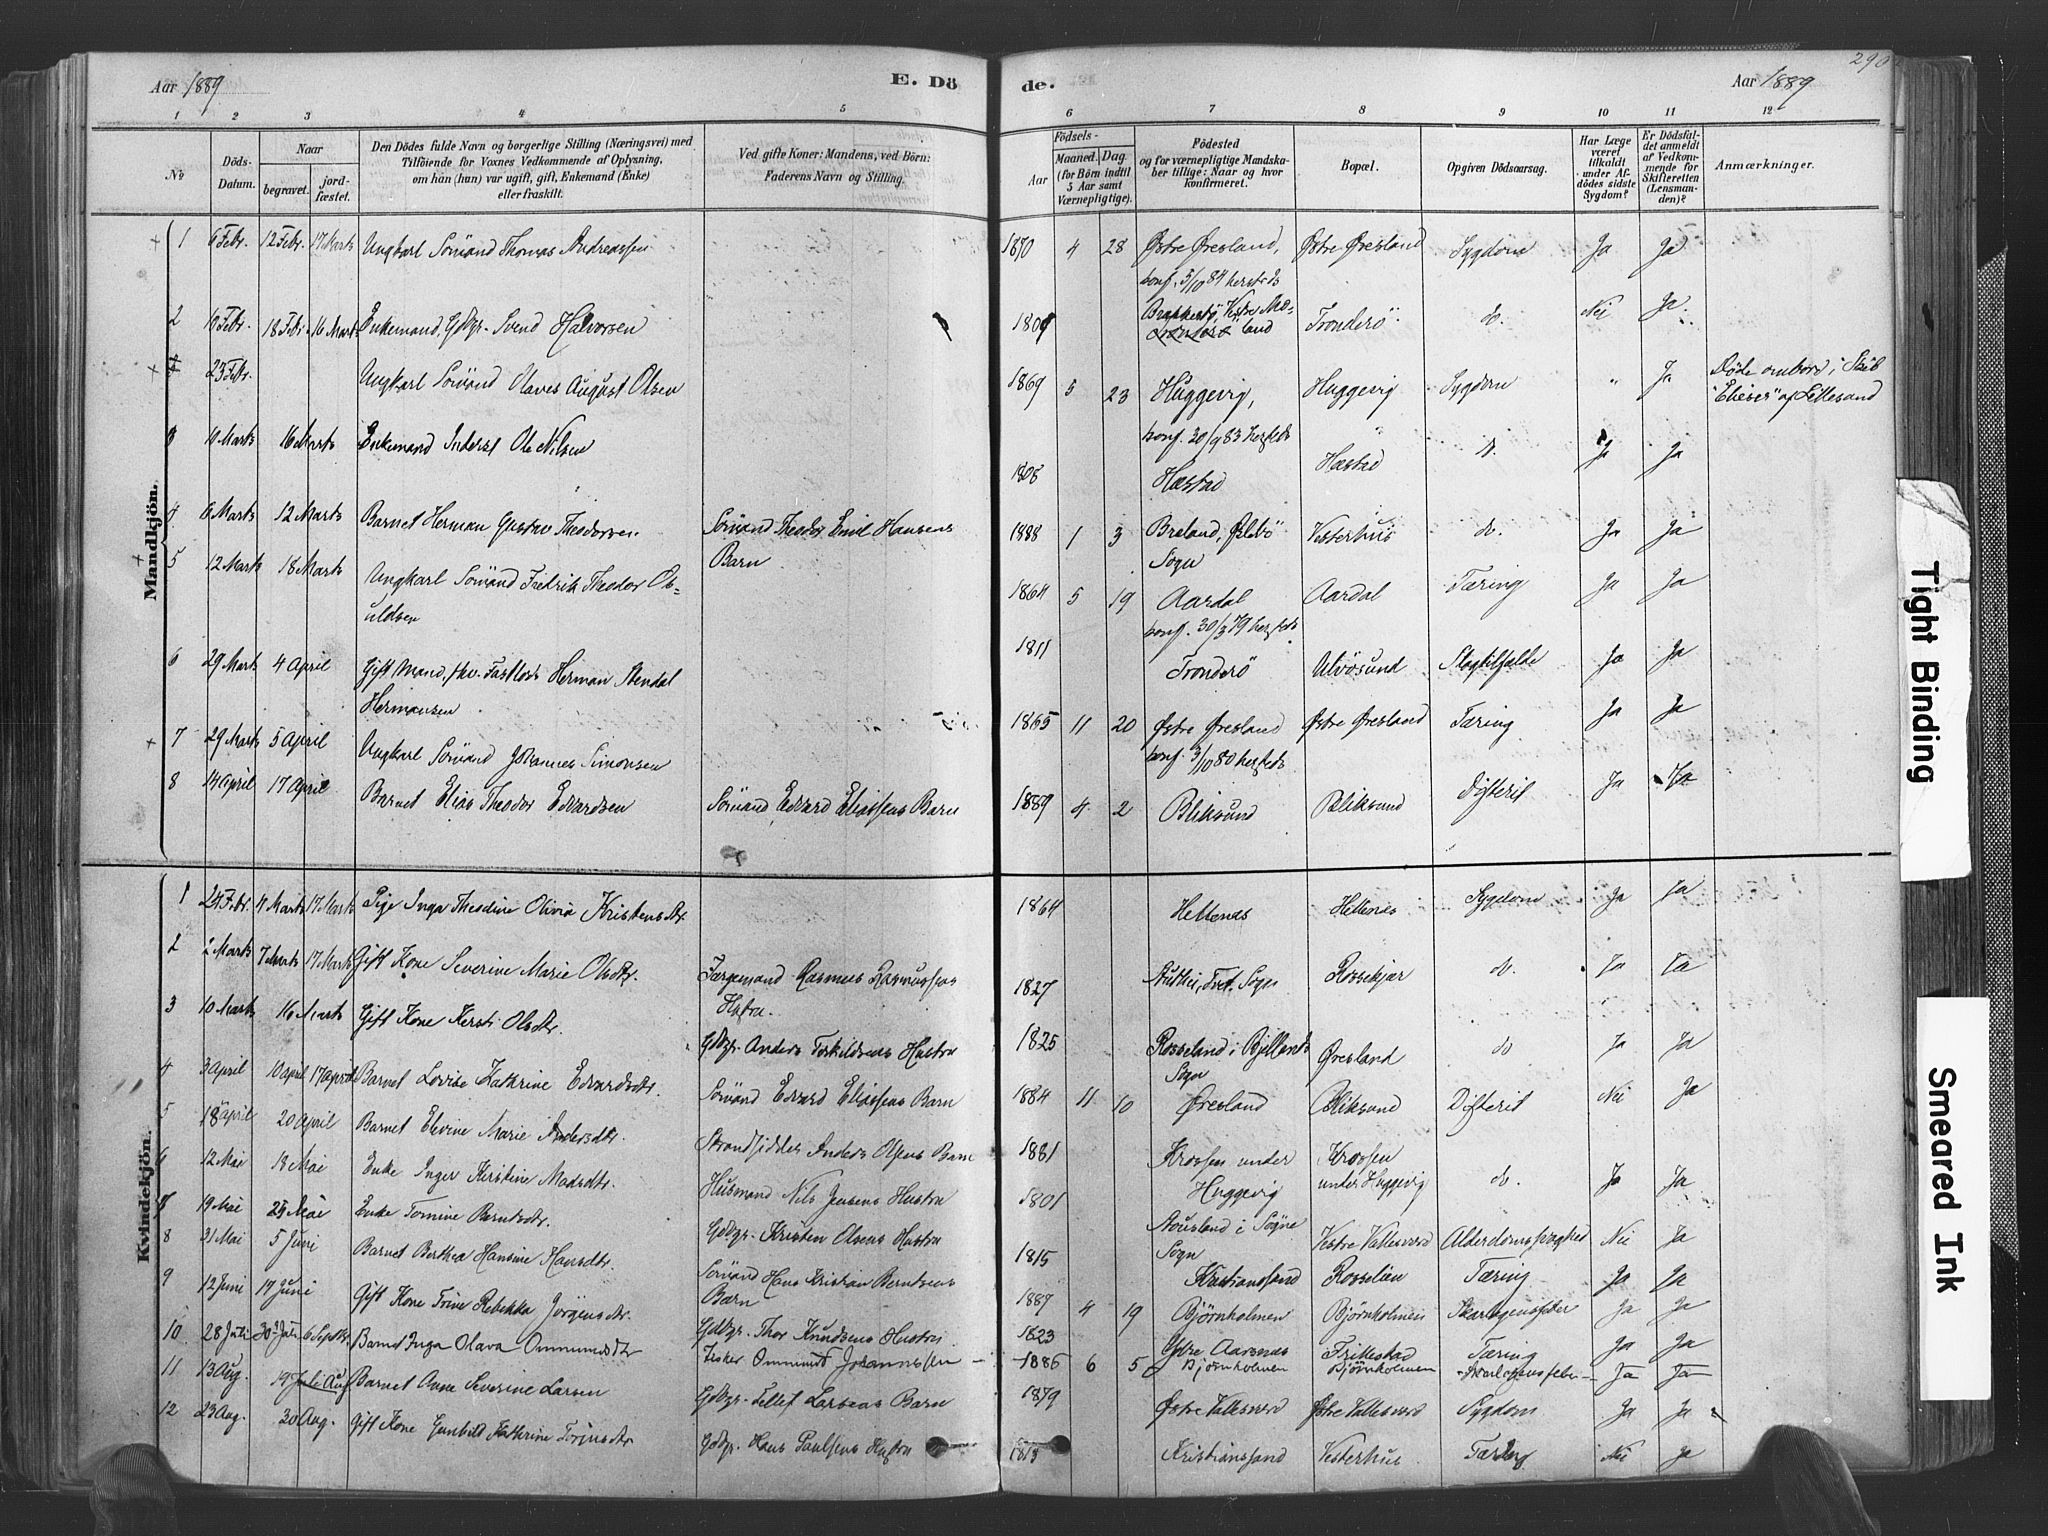 290
Aar 1889
E. Dö
de.
Aar 1889
1 2 3 4 5 6 7 8 9 10 11 12
No
Döds-Datum.
Naar
begravet.
jord-fæstet.
Den Dödes fulde Navn og borgerlige Stilling (Næringsvei) med
Tilföiende for Voxnes Vedkommende af Oplysning,
om han (hun) var ugift, gift, Enkemand (Enke)
eller fraskilt.
Ved gifte Koner: Mandens, ved Börn:
Faderens Navn og Stilling.
Födsels-
Aar
Maaned.
Dag
(for Börn indtil
5 Aar samt
Værnepligtige).
Födested
og for værnepligtige Mandska-
ber tillige: Naar og hvor
konfirmeret.
Bopæl.
Opgiven Dödsaarsag.
Har Læge
været
tilkaldt
under Af-
dödes sidste
Sygdom?
Er Dödsfal-
det anmeldt
af Vedkom-
mende for
Skifteretten
(Lensman-
den)?
Anmærkninger.
Mandkjön.
1 6 Febr. 12 Febr. 17 Marts Ungkarl Sømand Thomas Andreassen 1870 4 28 Østre Øresland, Østre Øresland Sygdom Ja Ja
konf. 5/10 84 hersteds
2 Febr. 18 Febr. 16 Marts Enkemand, Gdbgr. Svend Halvorsen Tronderö do. Nei Ja
land
23 Febr. Ungkarl Sømand Olaves August Olsen 1869 5 23 Huggevig, Huggevig Sygdom " Ja Døde ombord i Skib
"Elieser" af Lillesand
konf. 30/9 83 hersteds
3 Marts 16 Marts Enkemand Inderst Ole Nilsen 1808 Hæstad Hæstad d. Ja Ja
4 6 Marts 12 Marts Barnet Herman Gustav Theodorsen Sømand Theodor Emil Hansens
Barn 1888 1 3 Breland, Øslebö
Sogn Vesterhus do. Ja Ja
5 12 Marts 18 Marts Ungkarl Sømand Fredrik Theodor Os-
uldsen 1864 5 19 Aardal Aardal Tæring Ja Ja
konf. 30/3 79 hersteds
6 29 Marts 4 April Gift Mand, Herman Stendal
Hermansen 1811 Tronderö Ulvösund Slagtilfælde Ja Ja
7 29 Marts 5 April Ungkarl Sømand Johannes Simonsen 1865 11 20 Østre Øresland Østre Øresland Tæring Ja Ja
konf. 3/10 80 hersteds
8 14 April 17 April Barnet Elias Theodor Edvardsen Sømand Edvard Eliassens Barn 1889 4 2 Bliksund Bliksund Difterit Ja Ja
Kvindekjön.
1 24 Febr. 4 Marts 17 Marts Pige Inga Theodine Olivia Kristensdtr. 1864 Hellenes Hellenes Sygdom Ja Ja
2 2 Marts 7 Marts 17 Marts Gift Kone Severine Marie Olsdtr. Færgemand Rasmus Rasmussens
Hustru. 1827 Tvet Sogn Rossekjær do. Ja Ja
3 10 Marts 16 Marts Gift Kone Kersti Olsdtr. Gdbgr. Anders Terkildsens Hustru 1825 Rosseland i Bjellands
Sogn Øresland do Ja Ja
4 3 April 10 April 17 April Barnet Lovise Kathrine Edvardsdtr. Sømand Edvard Eliassens Barn 1884 11 10 Øresland Bliksund Difterit Nei Ja
5 18 April 20 April Barnet Elevine Marie Andersdtr. Strandsidder Anders Olsens Barn 1881 Krossen under
Huggevig Krossen
under Huggevig do. Ja Ja
6 12 Mai 18 Mai Enke Inger Kirstine Madsdtr. Husmand Nils Jensens Hustru 1801 i Sogne
Sogn Vestre Vallesværd Alderdomssvaghed Nei Ja
7 19 Mai 25 Mai Enke Tomine Berntsdtr. Gdbgr. Kristen Olsens Hustru 1815 Kristianssand Rosselien Tæring Ja Ja
8 31 Mai 5 Juni Barnet Berthea Hansine Hansdtr. Sømand Hans Kristian Berntsens
Barn 1887 4 19 Bjørnholmen Bjørnholmen Skarlagensfeber Ja Ja
9 12 Juni 19 Juni Gift Kone Trine Rebekka Jørgensdtr. Gdbgr. Thor Knudsens Hustru 1823 Ydre Aarsnes Frillestad Tæring Ja Ja
10 28 Juli 30 Juli 6 Septbr. Barnet Inga Olava Ommundsdtr Fisker Ommund Johannessen 1886 6 5 Bjørnholmen Bjørnholmen Skarlagensfeber Ja Ja
11 13 Aug. 19 Aug Barnet Anne Severine Larsen Gdbgr. Tellef Larsens Barn 1879 Østre Vallesværd Østre Vallesværd Sygdom Ja Ja
12 23 Aug. 30 Aug. Gift Kone Gunhild Kathrine Torjusdtr. Gdbgr. Hans Paulsens Hustru 1813 Kristianssand Vesterhus Tæring Nei Ja
Tight Binding
Smeared Ink